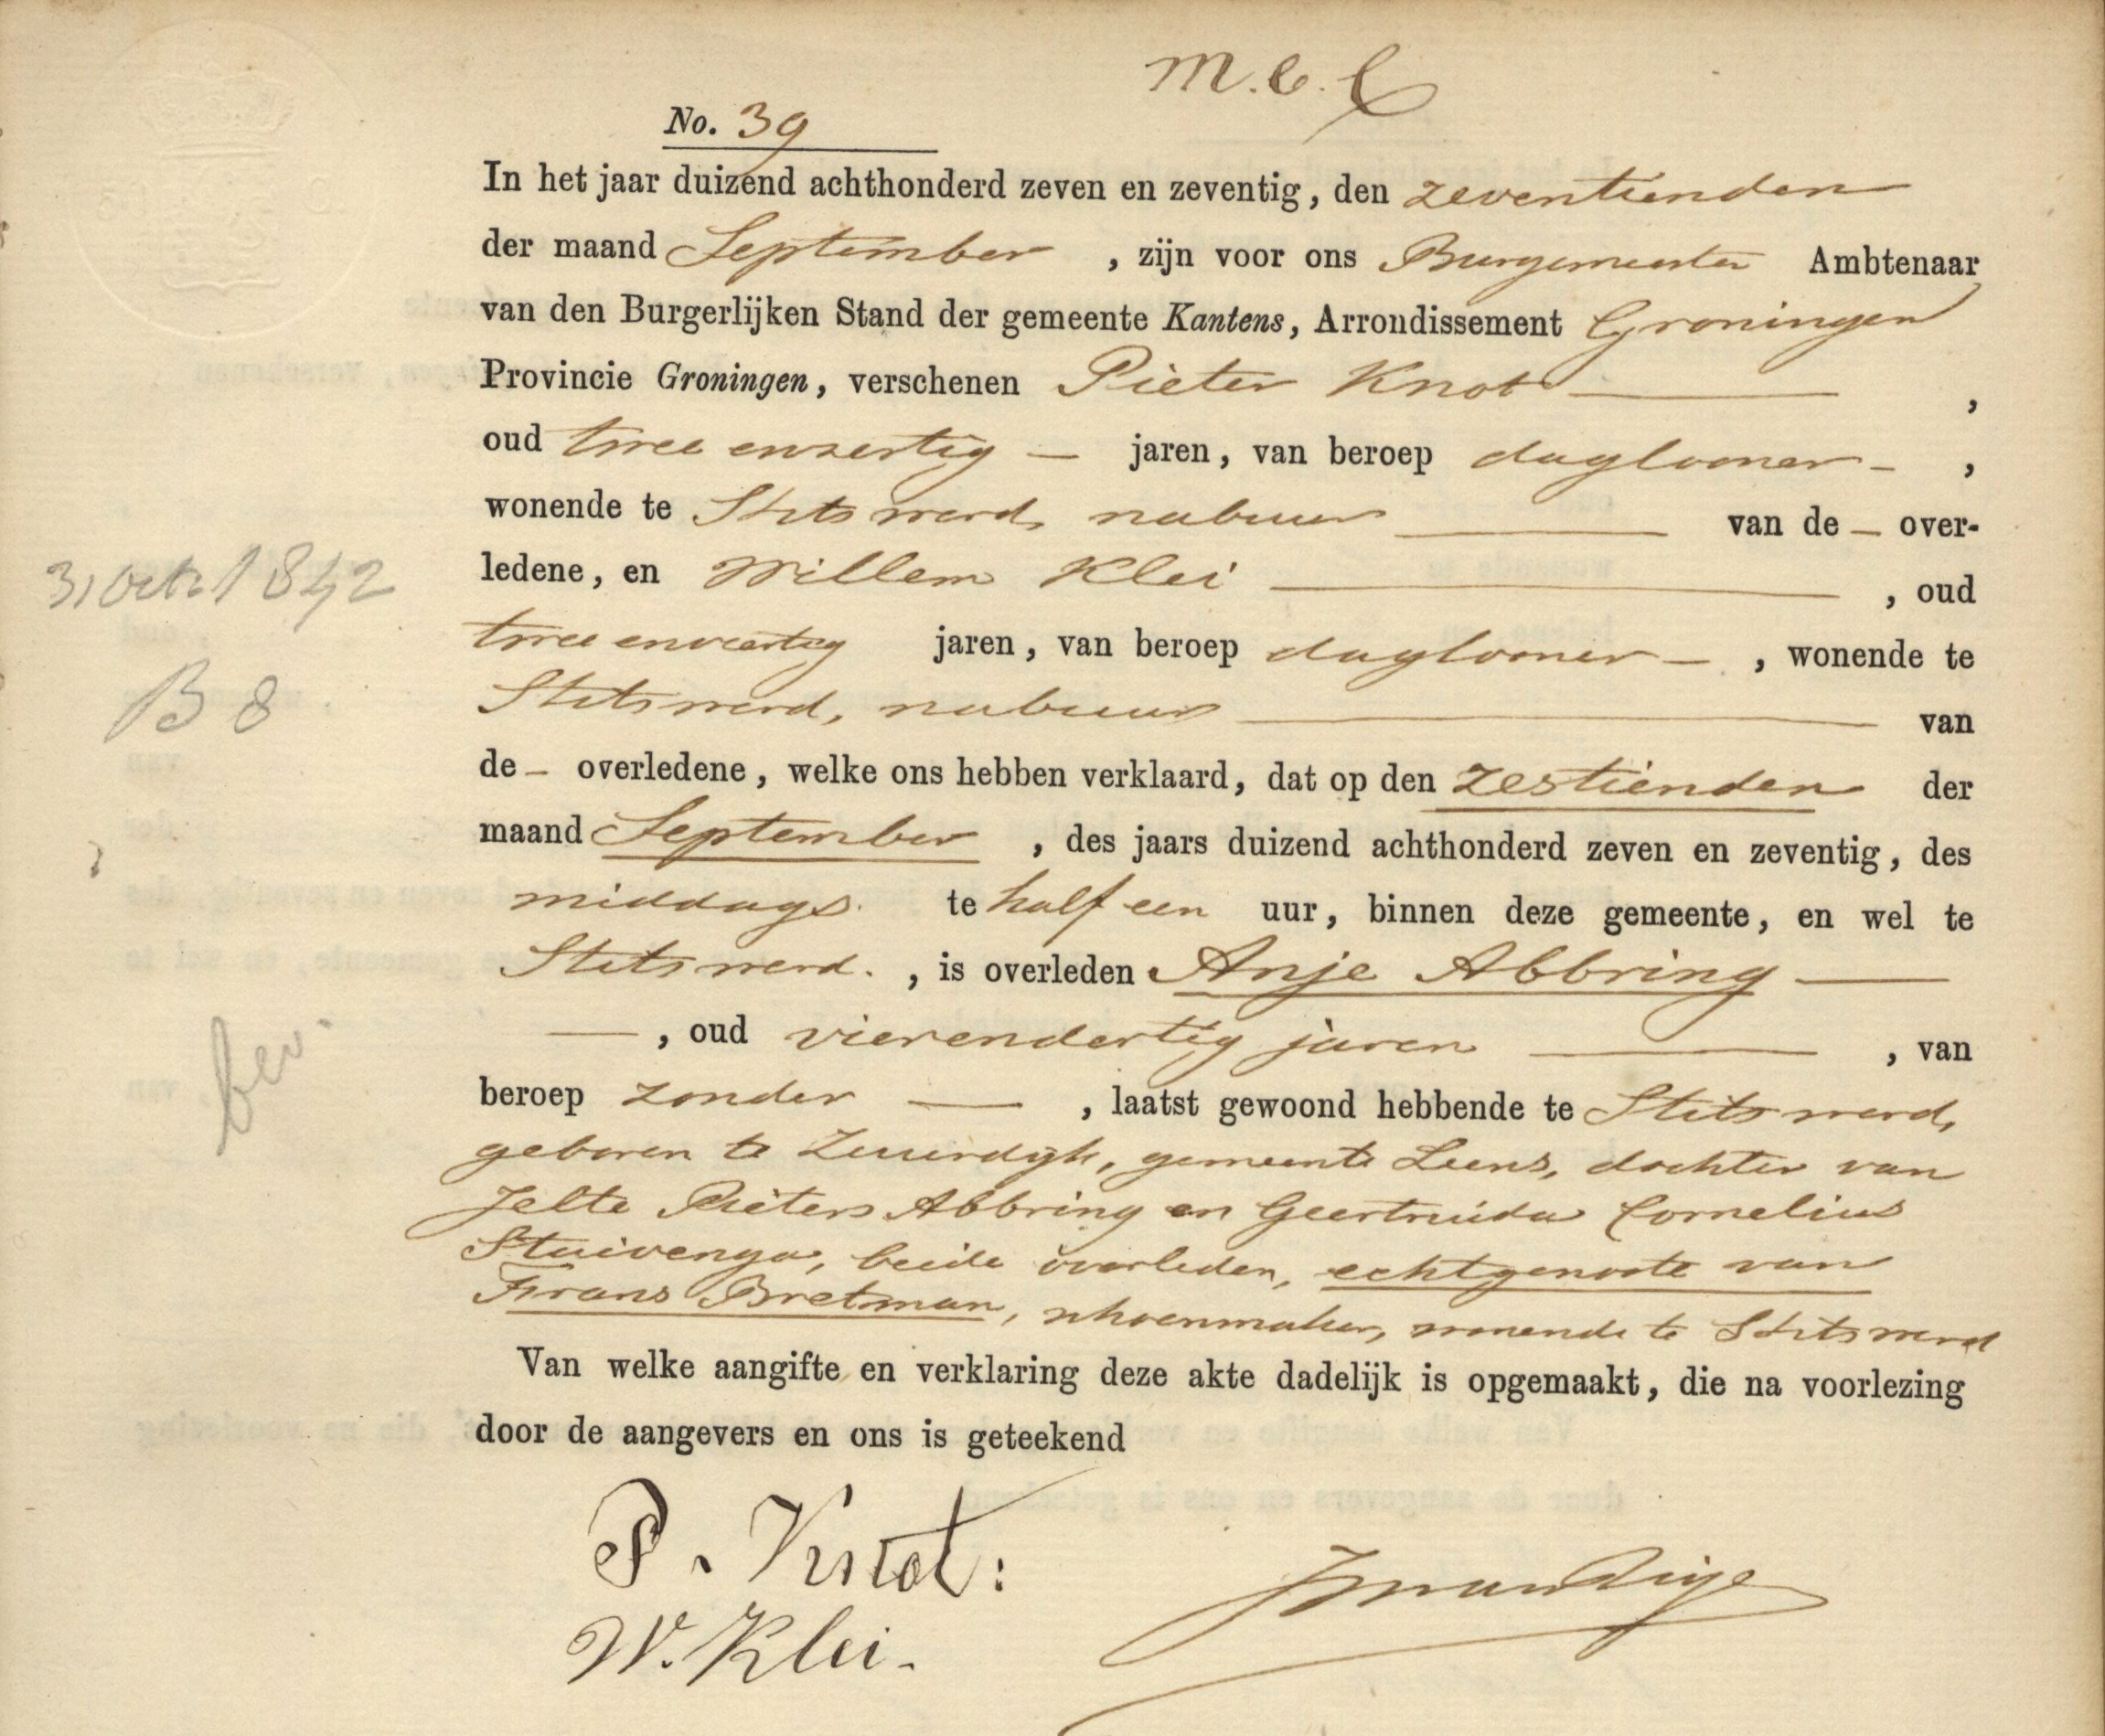 M.C.C
No. 39
In het jaar duizend achthonderd zeven en zeventig, den zeventienden
der maand September, zijn voor ons Burgemeester Ambtenaar
van den Burgerlijken Stand der gemeente Kantens, Arrondissement Groningen
Provincie Groningen, verschenen Pieter Knot —,
oud twee enzestig — jaren, van beroep daglooner —,
wonende te Stitswerd, nabuur — van de — over-
ledene, en Willem Klei —, oud
twee enveertig jaren, van beroep daglooner —, wonende te
Stitswerd, nabuur — van
de — overledene, welke ons hebben verklaard, dat op den zestienden der
maand September, des jaars duizend achthonderd zeven en zeventig, des
middags te half een uur, binnen deze gemeente, en wel te
Stitswerd., is overleden Anje Abbring —
—, oud vierendertig jaren —, van
beroep zonder —, laatst gewoond hebbende te Stitswerd,
geboren te Zuurdijk, gemeente Leens, dochter van
Jelte Pieters Abbring en Geertruida Cornelius
Stuivenga, beide overleden, echtgenoote van
Frans Bretman, schoenmaker, wonende te Stitswerd
Van welke aangifte en verklaring deze akte dadelijk is opgemaakt, die na voorlezing
door de aangevers en ons is geteekend
P. Knot:
W. Klei.
31 Oct. 1842
B 8
bev.